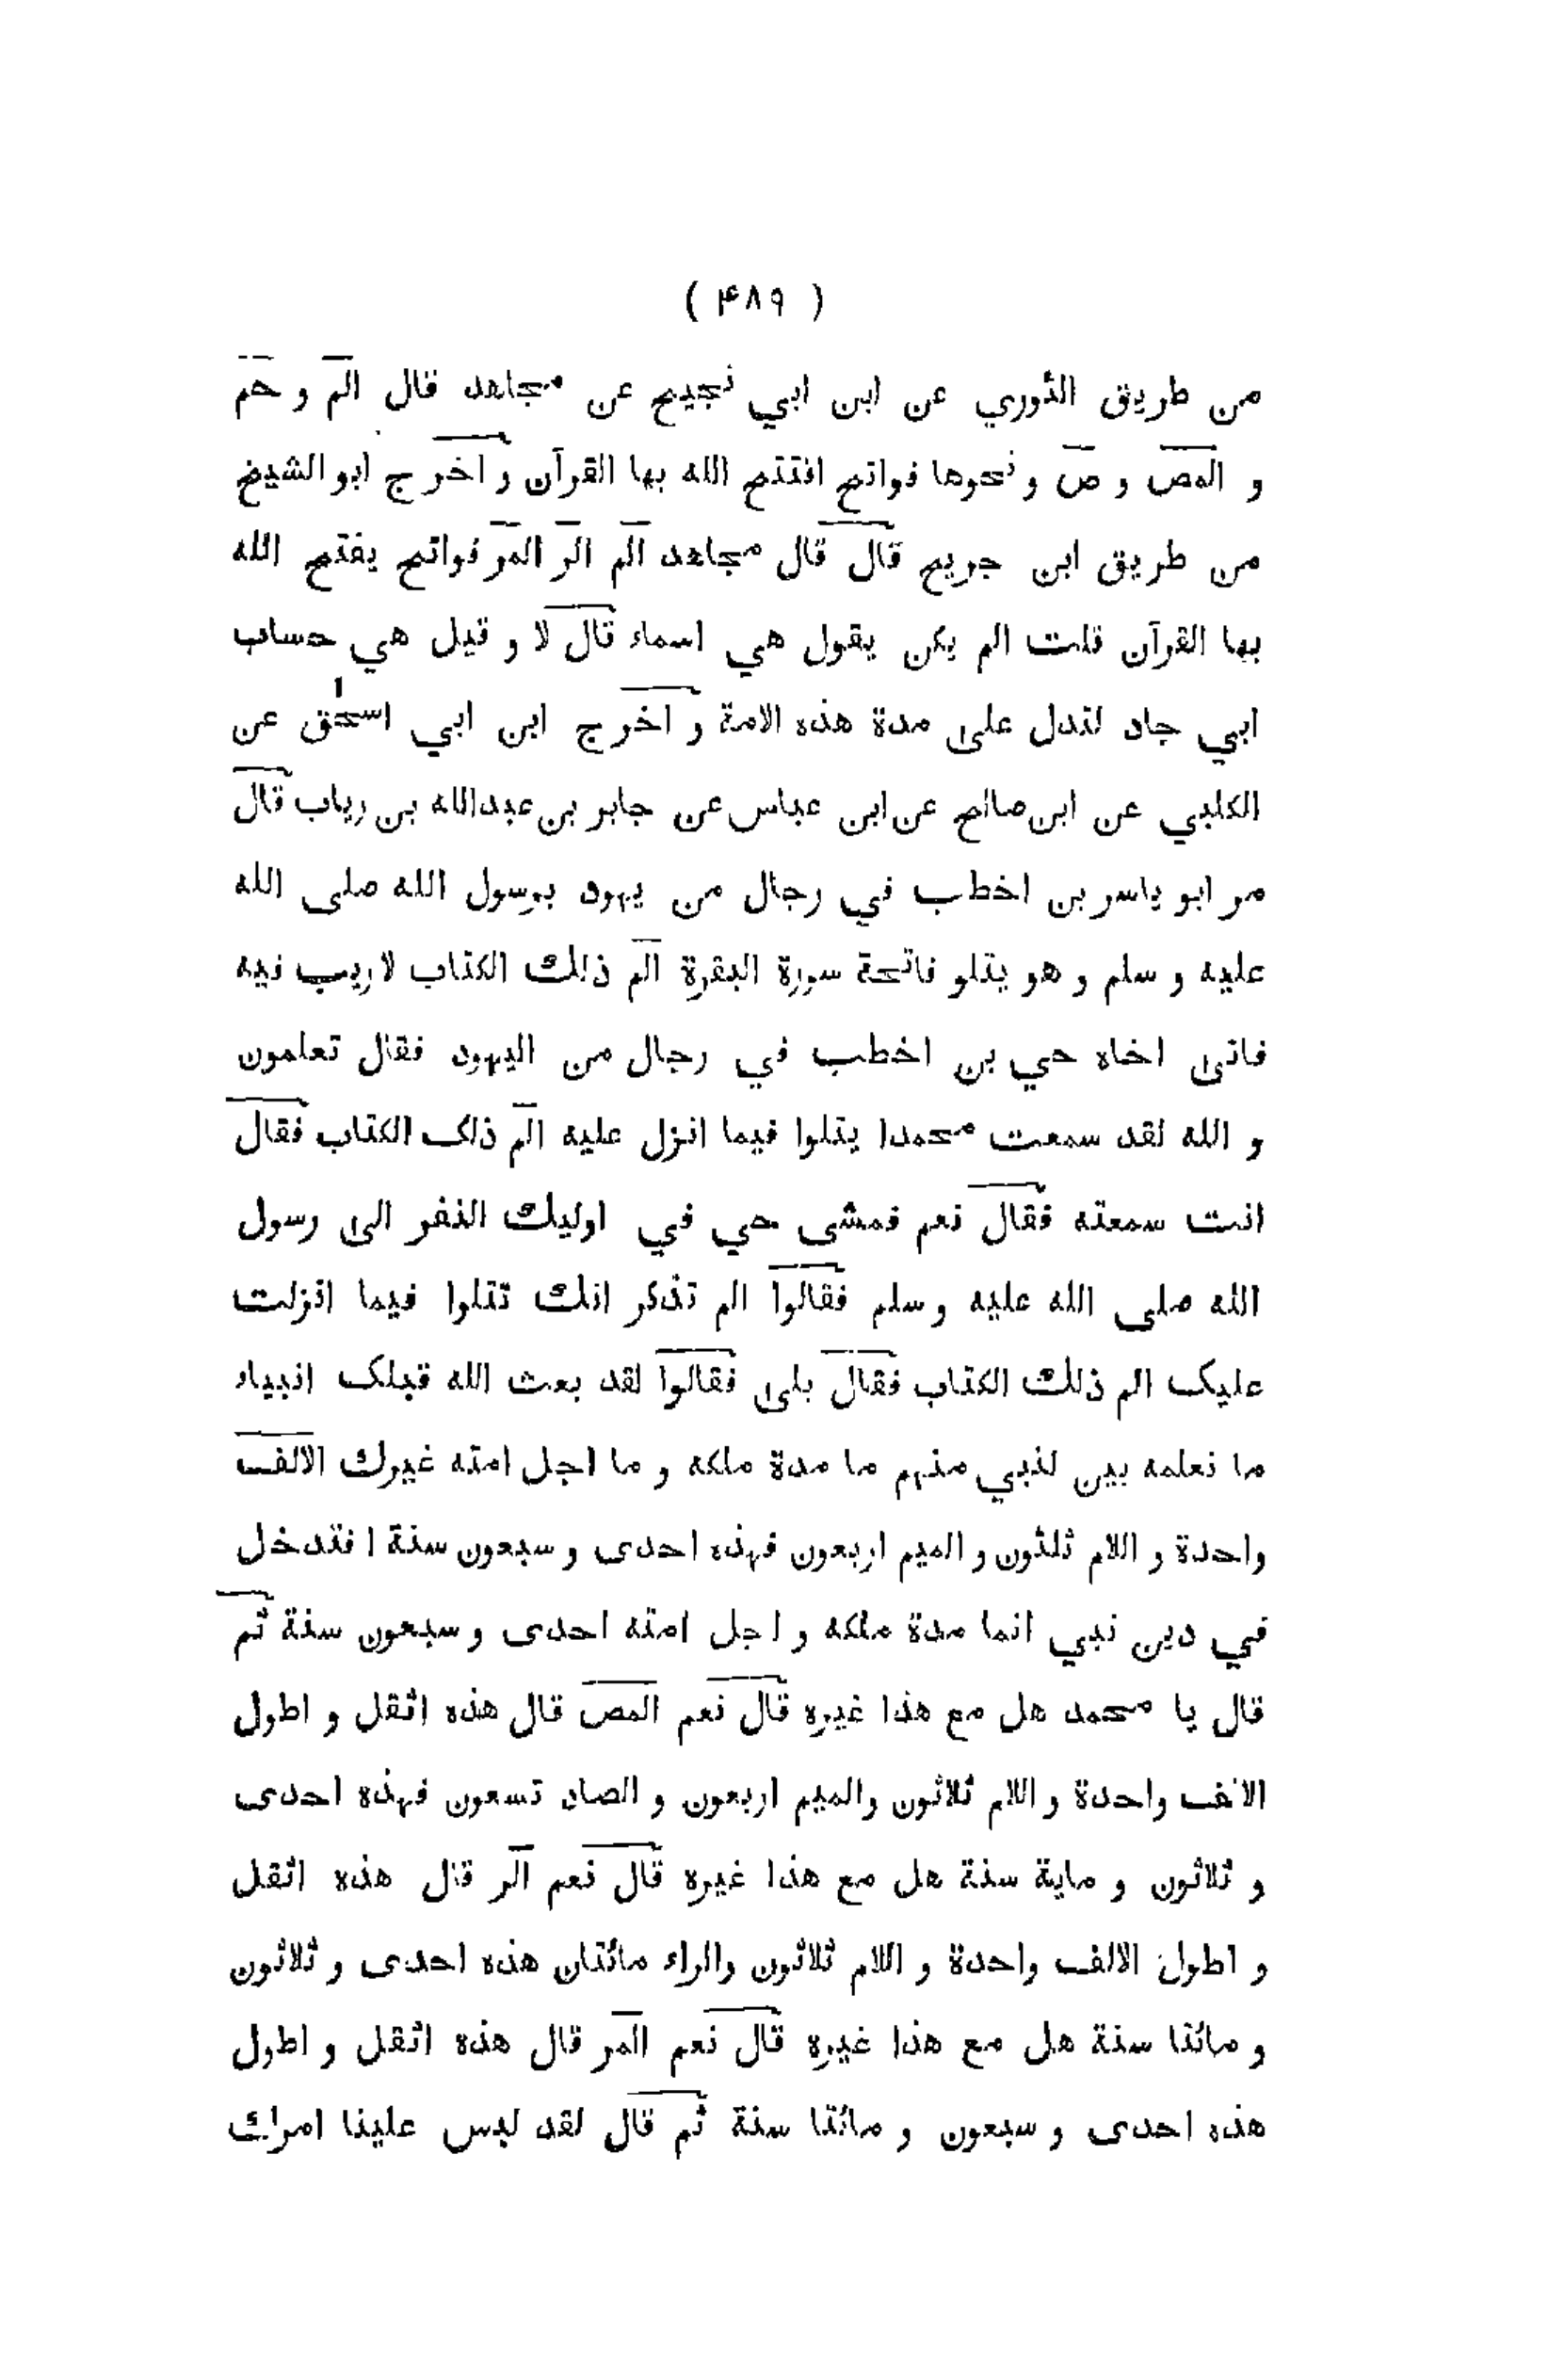 ( ۴۸۹ )
من طريق الثوري عن ابن ابي نجيح عن مجاهد قال الم و حم
و المص و ص و نحوها فواتح افتتح الله بها القرآن و اخرج ابو الشيخ
من طريق ابن جريج قال قال مجاهد الم الر المر فواتح يفتح الله
بها القرآن قلت الم يكن يقول هي اسماء قال لا و قيل هي حساب
ابي جاد لتدل على مدة هذه الامة و اخرج ابن ابي اسحٰق عن
الكلبي عن ابن صالح عن ابن عباس عن جابر بن عبدالله بن رياب قال
مر ابو ياسر بن اخطب في رجال من يهود برسول الله صلى الله
عليه و سلم و هو يتلو فاتحة سورة البقرة الم ذلك الكتاب لا ريب فيه
فاتى اخاه حي بن اخطب في رجال من اليهود فقال تعلمون
و الله لقد سمعت محمدا يتلوا فيما انزل عليه الم ذلک الكتاب فقال
انت سمعته فقال نعم فمشى حي في اوليك النفر الى رسول
الله صلى الله عليه و سلم فقالوا الم تذكر انك تتلوا فيما انزلت
عليک الم ذلك الكتاب فقال بلى فقالوا لقد بعث الله قبلک انبياء
ما نعلمه بين لنبي منهم ما مدة ملكه و ما اجل امته غيرك الالف
واحدة و اللام ثلثون و الميم اربعون فهذه احدى و سبعون سنة ا فتدخل
في دين نبي انما مدة ملكه و اجل امته احدى و سبعون سنة ثم
قال يا محمد هل مع هذا غيره قال نعم المص قال هذه اثقل و اطول
الالف واحدة و اللام ثلاثون والميم اربعون و الصاد تسعون فهذه احدى
و ثلاثون و ماية سنة هل مع هذا غيره قال نعم الر قال هذه اثقل
و اطول الالف واحدة و اللام ثلاثون والراء مائتان هذه احدى و ثلاثون
و مائتا سنة هل مع هذا غيره قال نعم المر قال هذه اثقل و اطول
هذه احدى و سبعون و مائتا سنة ثم قال لقد لبس علينا امرك